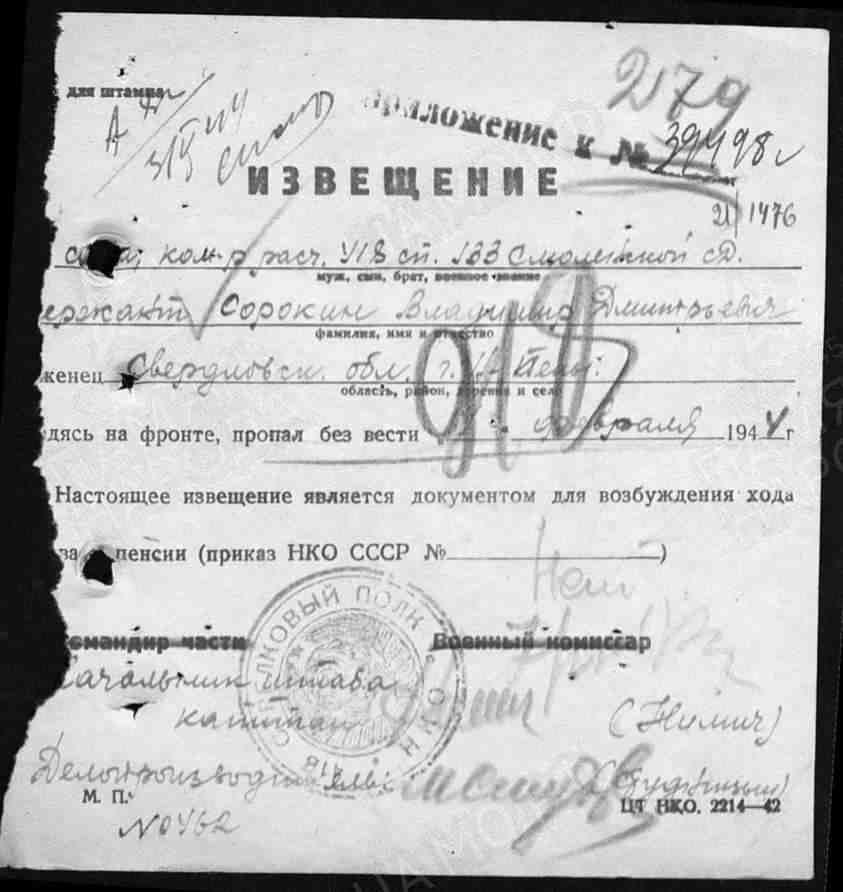 279
для штампа
Приложение к № 39498
ИЗВЕЩЕНИЕ
21/1476
ком-р расч. 418 сп. 133 Смоленской сд.
муж, сын, брат, военное звание
ержант Сорокин Владимир Дмитрьевич
фамилия, имя и отчество
женец Свердловск. обл. г.
область, район, деревня и село
918
дясь на фронте, пропал без вести февраля 1944 г
Настоящее извещение является документом для возбуждения хода
за пенсии (приказ НКО СССР № )
омандир части Военный комиссар
СТРЕЛКОВЫЙ ПОЛК НКО 418
ачальник штаба
капитан
Делопроизводитель
М. П.
ЦТ НКО. 2214—42
№0462